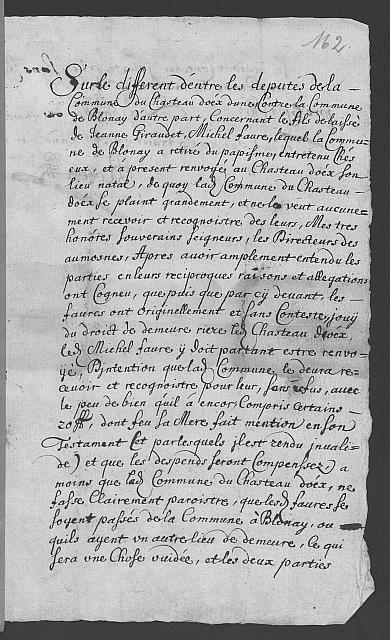 162.
Sur le different d'entre les deputés de la
Commune du Chasteau doéx dune, Contre la Commune
de Blonay dautre part, Concernant le fils delaissé
de Jeanne Giraudet, Michel faure, lequel la Commu-
ne de Blonay a retiré du papisme, entretenu Ches
eux, et a present renvoyé au Chasteau doéx son
lieu natal, de quoy lad Commune du Chasteau
doéx se plaint grandement, et ne le veut aucune-
ment recevoir et recognoistre des leurs, Mes tres
honorés souverains seigneurs, les Directeurs des
aumosnes, Apres avoir amplement entendu les
parties en leurs reciproques raisons et allegations
ont Cogneu, que puis que par cy devant, les
faures ont originellement et sans Conteste, jouy
du droict de demeure riere led Chasteau doéx,
led Michel faure y doit partant estre renvo-
yé, Pintention que lad Commune, le devra re-
cevoir et recognoistre pour leur, sans refus, avec
le peu de bien quil a encor, Compris certains
20 ff, dont feu sa Mere fait mention en son
Testament (et par lesquels jl est rendu jnvali-
de) et que les despends seront Compensez, a
moins que lad Commune du Chasteau doéx, ne
fasse Clairement paroistre, que lesd faures se
soyent passés de la Commune à Blonay, ou
quils ayent vn autre lieu de demeure, Ce qui
sera vne Chose vuidée, et les deux parties